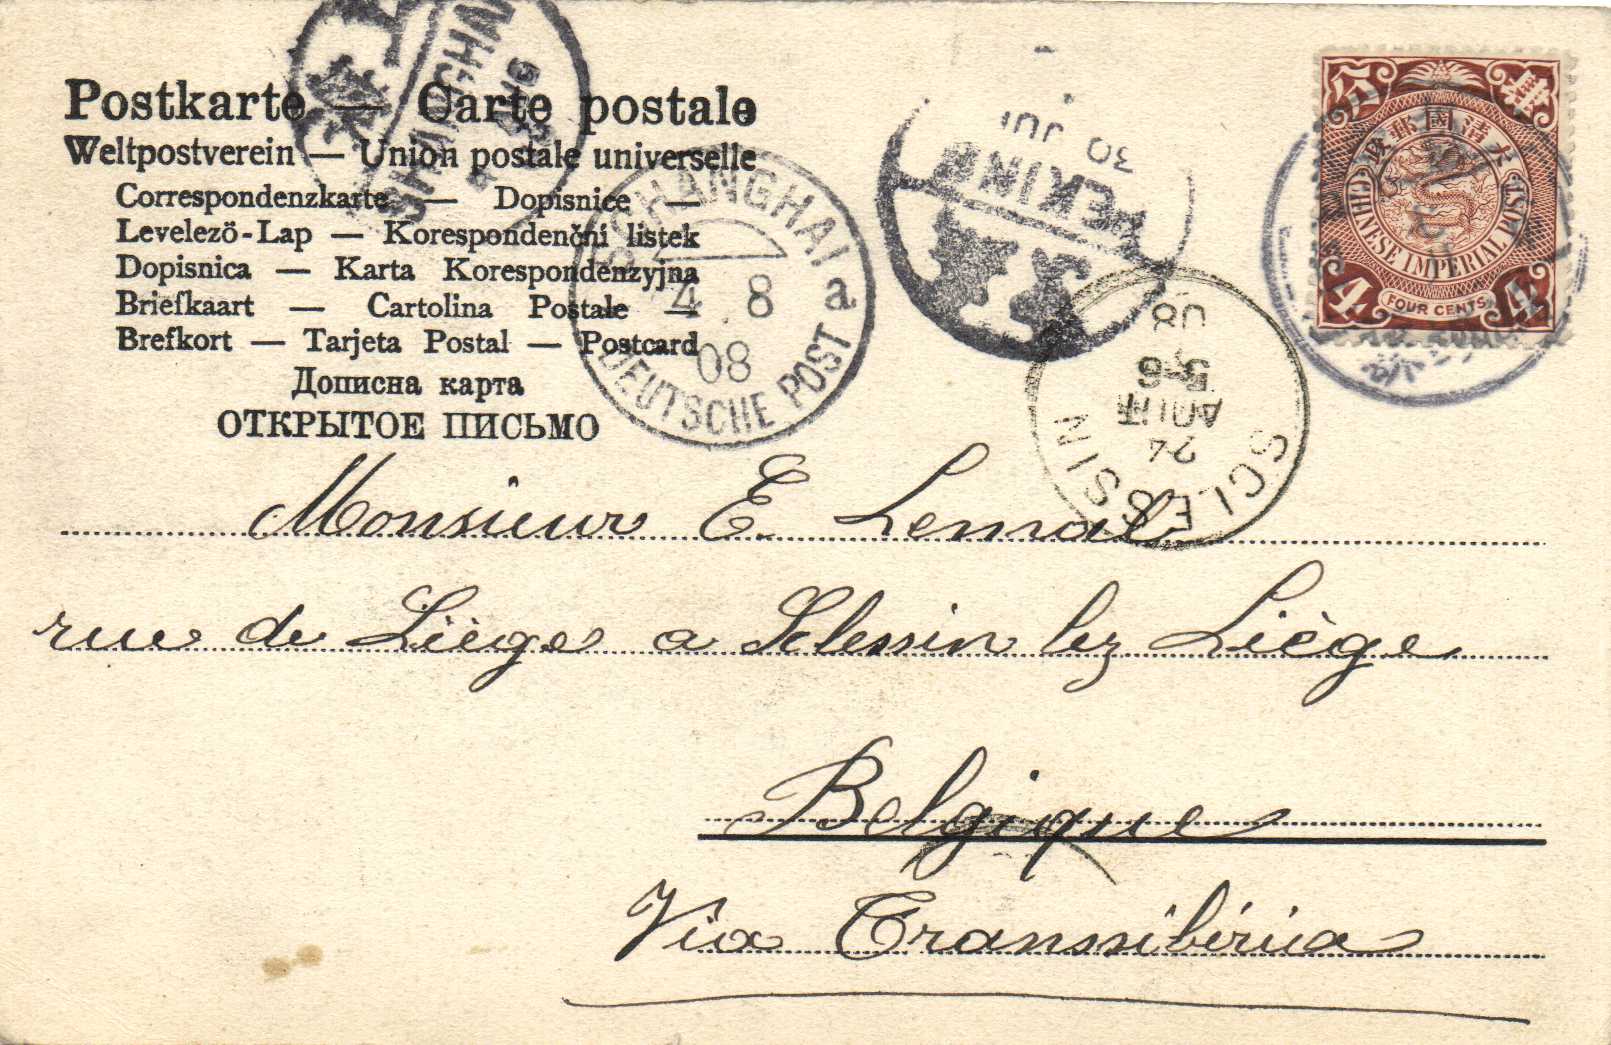 Postkarte — Carte postale
Weltpostverein — Union postale universelle
Correspondenzkarte — Dopisnice —
Levelezö-Lap — Korespondenční listek
Dopisnica — Karta Korespondenzyjna
Briefkaart — Cartolina Postale —
Brefkort — Tarjeta Postal — Postcard
Дописна карта
ОТКРЫТОЕ ПИСЬМО
SHANGHAI
SHANGHAI a
4 8
08
DEUTSCHE POST
PEKING
30 JUI
SCLESSIN
24
AOUT
5-6
08
大清國郵政
CHINESE IMPERIAL POST
FOUR CENTS
4
Monsieur E. Lemal
rue de Liège a Sclessin lez Liège
Belgique
Via Transsibéria